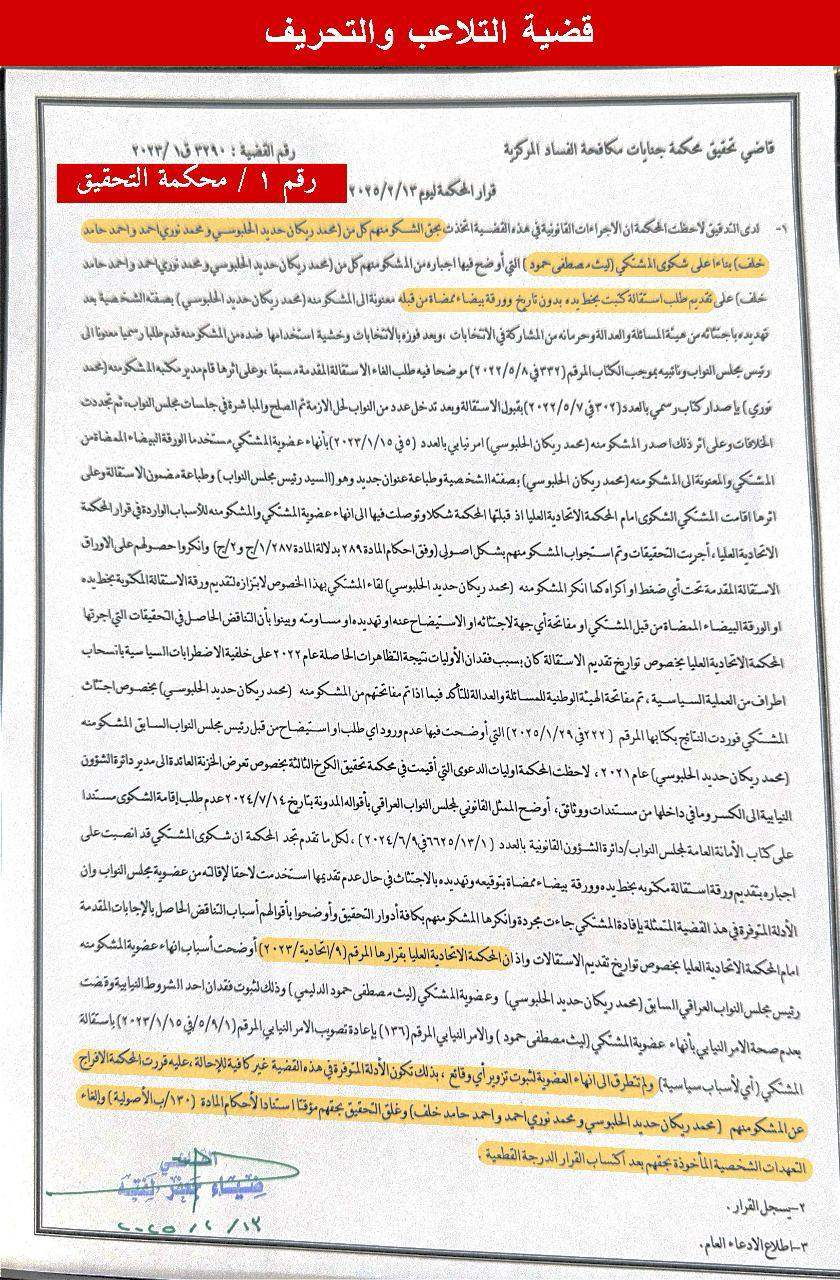 قضية التلاعب والتحريف
قاضي تحقيق محكمة جنايات مكافحة الفساد المركزية
رقم القضية : ٣٢٩٠ ق١ /٢٠٢٣
رقم ١ / محكمة التحقيق
قرار المحكمة ليوم ٢٠٢٥/٢/١٣
١- لدى التدقيق لاحظت المحكمة ان الاجراءات القانونية في هذه القضية اتخذت بحق المشكو منهم كل من (محمد ريكان حديد الحلبوسي و محمد نوري احمد واحمد حامد
خلف) بناءا على شكوى المشتكي (ليث مصطفى حمود ) التي أوضح فيها اجباره من المشكو منهم كل من (محمد ريكان حديد الحلبوسي و محمد نوري احمد واحمد حامد
خلف) على تقديم طلب استقالة كتبت بخط يده بدون تاريخ وورقة بيضاء ممضاة من قبله معنونة الى المشكو منه (محمد ريكان حديد الحلبوسي ) بصفته الشخصية بعد
تهديده باجتثاثه من هيئة المسائلة والعدالة وحرمانه من المشاركة في الانتخابات ، وبعد فوزه بالانتخابات وخشية استخدامها ضده من المشكو منه قدم طلبا رسميا معنونا الى
رئيس مجلس النواب ونائبيه بموجب الكتاب المرقم (٣٣٢ في ٢٠٢٢/٥/٨) موضحا فيه طلب الغاء الاستقالة المقدمة مسبقا ، وعلى اثرها قام مدير مكتبه المشكو منه (محمد
نوري ) بإصدار كتاب رسمي بالعدد (٣٠٢ في ٢٠٢٢/٥/٧) بقبول الاستقالة وبعد تدخل عدد من النواب لحل الازمة تم الصلح والمباشرة في جلسات مجلس النواب، ثم تجددت
الخلافات وعلى اثر ذلك اصدر المشكو منه (محمد ريكان الحلبوسي ) امر نيابي بالعدد (٥ في ٢٠٢٣/١/١٥) بأنهاء عضوية المشتكي مستخدما الورقة البيضاء الممضاة من
المشتكي والمعنونة الى المشكو منه (محمد ريكان الحلبوسي ) بصفته الشخصية وطباعة عنوان جديد وهو (السيد رئيس مجلس النواب ) وطباعة مضمون الاستقالة وعلى
اثرها اقامت المشتكي الشكوى امام المحكمة الاتحادية العليا اذ قبلتها المحكمة شكلا وتوصلت فيها الى انهاء عضوية المشتكي والمشكو منه للأسباب الواردة في قرار المحكمة
الاتحادية العليا ، أجريت التحقيقات وتم استجواب المشكو منهم بشكل اصولي (وفق احكام المادة ٢٨٩ بدلالة المادة ١/٢٨٧/ج و ٢/ج) وانكروا حصولهم على الاوراق
الاستقالة المقدمة تحت أي ضغط او اكراه كما انكر المشكو منه (محمد ريكان حديد الحلبوسي ) لقاء المشتكي بهذا الخصوص لابتزازه لتقديم ورقة الاستقالة المكتوبة بخط يده
او الورقة البيضاء الممضاة من قبل المشتكي او مفاتحة أي جهة لاجتثاثه او الاستيضاح عنه او تهديده او مساومته وبينوا بأن التناقض الحاصل في التحقيقات التي اجرتها
المحكمة الاتحادية العليا بخصوص تواريخ تقديم الاستقالة كان بسبب فقدان الأوليات نتيجة التظاهرات الحاصلة عام ٢٠٢٢ على خلفية الاضطرابات السياسية بانسحاب
اطراف من العملية السياسية ، تم مفاتحة الهيئة الوطنية للمسائلة والعدالة للتأكد فيما اذا تم مفاتحتهم من المشكو منه (محمد ريكان حديد الحلبوسي ) بخصوص اجتثاث
المشتكي فوردت النتائج بكتابها المرقم (٢٢٢ في ٢٠٢٥/١/٢٩) التي أوضحت فيها عدم ورود اي طلب او استيضاح من قبل رئيس مجلس النواب السابق المشكو منه
(محمد ريكان حديد الحلبوسي ) عام ٢٠٢١ ، لاحظت المحكمة اوليات الدعوى التي أقيمت في محكمة تحقيق الكرخ الثالثة بخصوص تعرض الخزنة العائدة الى مدير دائرة الشؤون
النيابية الى الكسر وما في داخلها من مستندات ووثائق، أوضح الممثل القانوني لمجلس النواب العراقي بأقواله المدونة بتاريخ ٢٠٢٤/٧/١٤ عدم طلب إقامة الشكوى مستندا
على كتاب الأمانة العامة لمجلس النواب/دائرة الشؤون القانونية بالعدد (٦٦٢٥/١٣/١ في ٢٠٢٤/٦/٩) ، لكل ما تقدم تجد المحكمة ان شكوى المشتكي قد انصبت على
اجباره بتقديم ورقة استقالة مكتوبه بخط يده وورقة بيضاء ممضاة بتوقيعه وتهديده بالاجتثاث في حال عدم تقديمها استخدمت لاحقا لإقالته من عضوية مجلس النواب وان
الأدلة المتوفرة في هذه القضية المتمثلة بإفادة المشتكي جاءت مجردة وانكرها المشكو منهم بكافة أدوار التحقيق وأوضحوا بأقوالهم أسباب التناقض الحاصل بالإجابات المقدمة
امام المحكمة الاتحادية العليا بخصوص تواريخ تقديم الاستقالات واذ ان المحكمة الاتحادية العليا بقرارها المرقم (٩/اتحادية/٢٠٢٣) أوضحت أسباب انهاء عضوية المشكو منه
رئيس مجلس النواب العراقي السابق (محمد ريكان حديد الحلبوسي ) وعضوية المشتكي (ليث مصطفى حمود الدليمي ) وذلك لثبوت فقدان احد الشروط النيابية وقضت
بعدم صحة الامر النيابي بأنهاء عضوية المشتكي (ليث مصطفى حمود ) والامر النيابي المرقم (١٣٦) بإعادة تصويب الامر النيابي المرقم (٥/٩/١/في ٢٠٢٣/١/١٥) باستقالة
المشتكي (أي لأسباب سياسية) ولم تتطرق الى انهاء العضوية لثبوت تزوير أي وقائع ، بذلك تكون الأدلة المتوفرة في هذه القضية غير كافية للإحالة، عليه قررت المحكمة الافراج
عن المشكو منهم (محمد ريكان حديد الحلبوسي و محمد نوري احمد واحمد حامد خلف) وغلق التحقيق بحقهم مؤقتا استنادا لأحكام المادة (١٣٠/ب الأصولية ) والغاء
التعهدات الشخصية المأخوذة بحقهم بعد اكتساب القرار الدرجة القطعية .
٢- يسجل القرار .
٣- اطلاع الادعاء العام .
القاضي
ضياء جعفر لفته
٢٠٢٥/٢/١٣